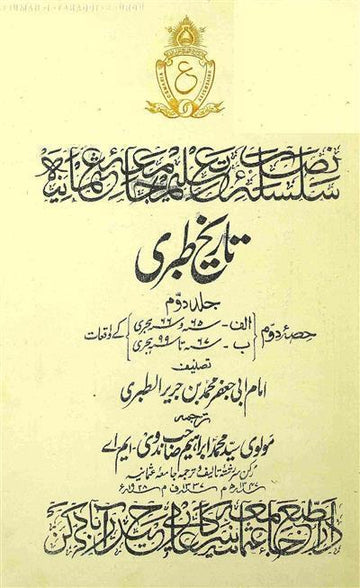 سلسلۂ نصاب تعلیم جامعۂ عثمانیہ
تاریخ طبری
جلد دوم
حصۂ دوم
الف - ۶۵ و ۶۶ ہجری
ب - ۶۷ تا ۹۹ ہجری
کے واقعات
تصنیف
امام ابی جعفر محمد بن جریر الطبری
ترجمہ
مولوی سید محمد ابراہیم صاحب ندوی - ایم اے
رکن سررشتۂ تالیف و ترجمہ جامعہ عثمانیہ
۱۳۴۷ھ م ۱۳۳۷ ف م ۱۹۲۸ء
دار الطبع جامعہ عثمانیہ سرکار عالی حیدرآباد دکن